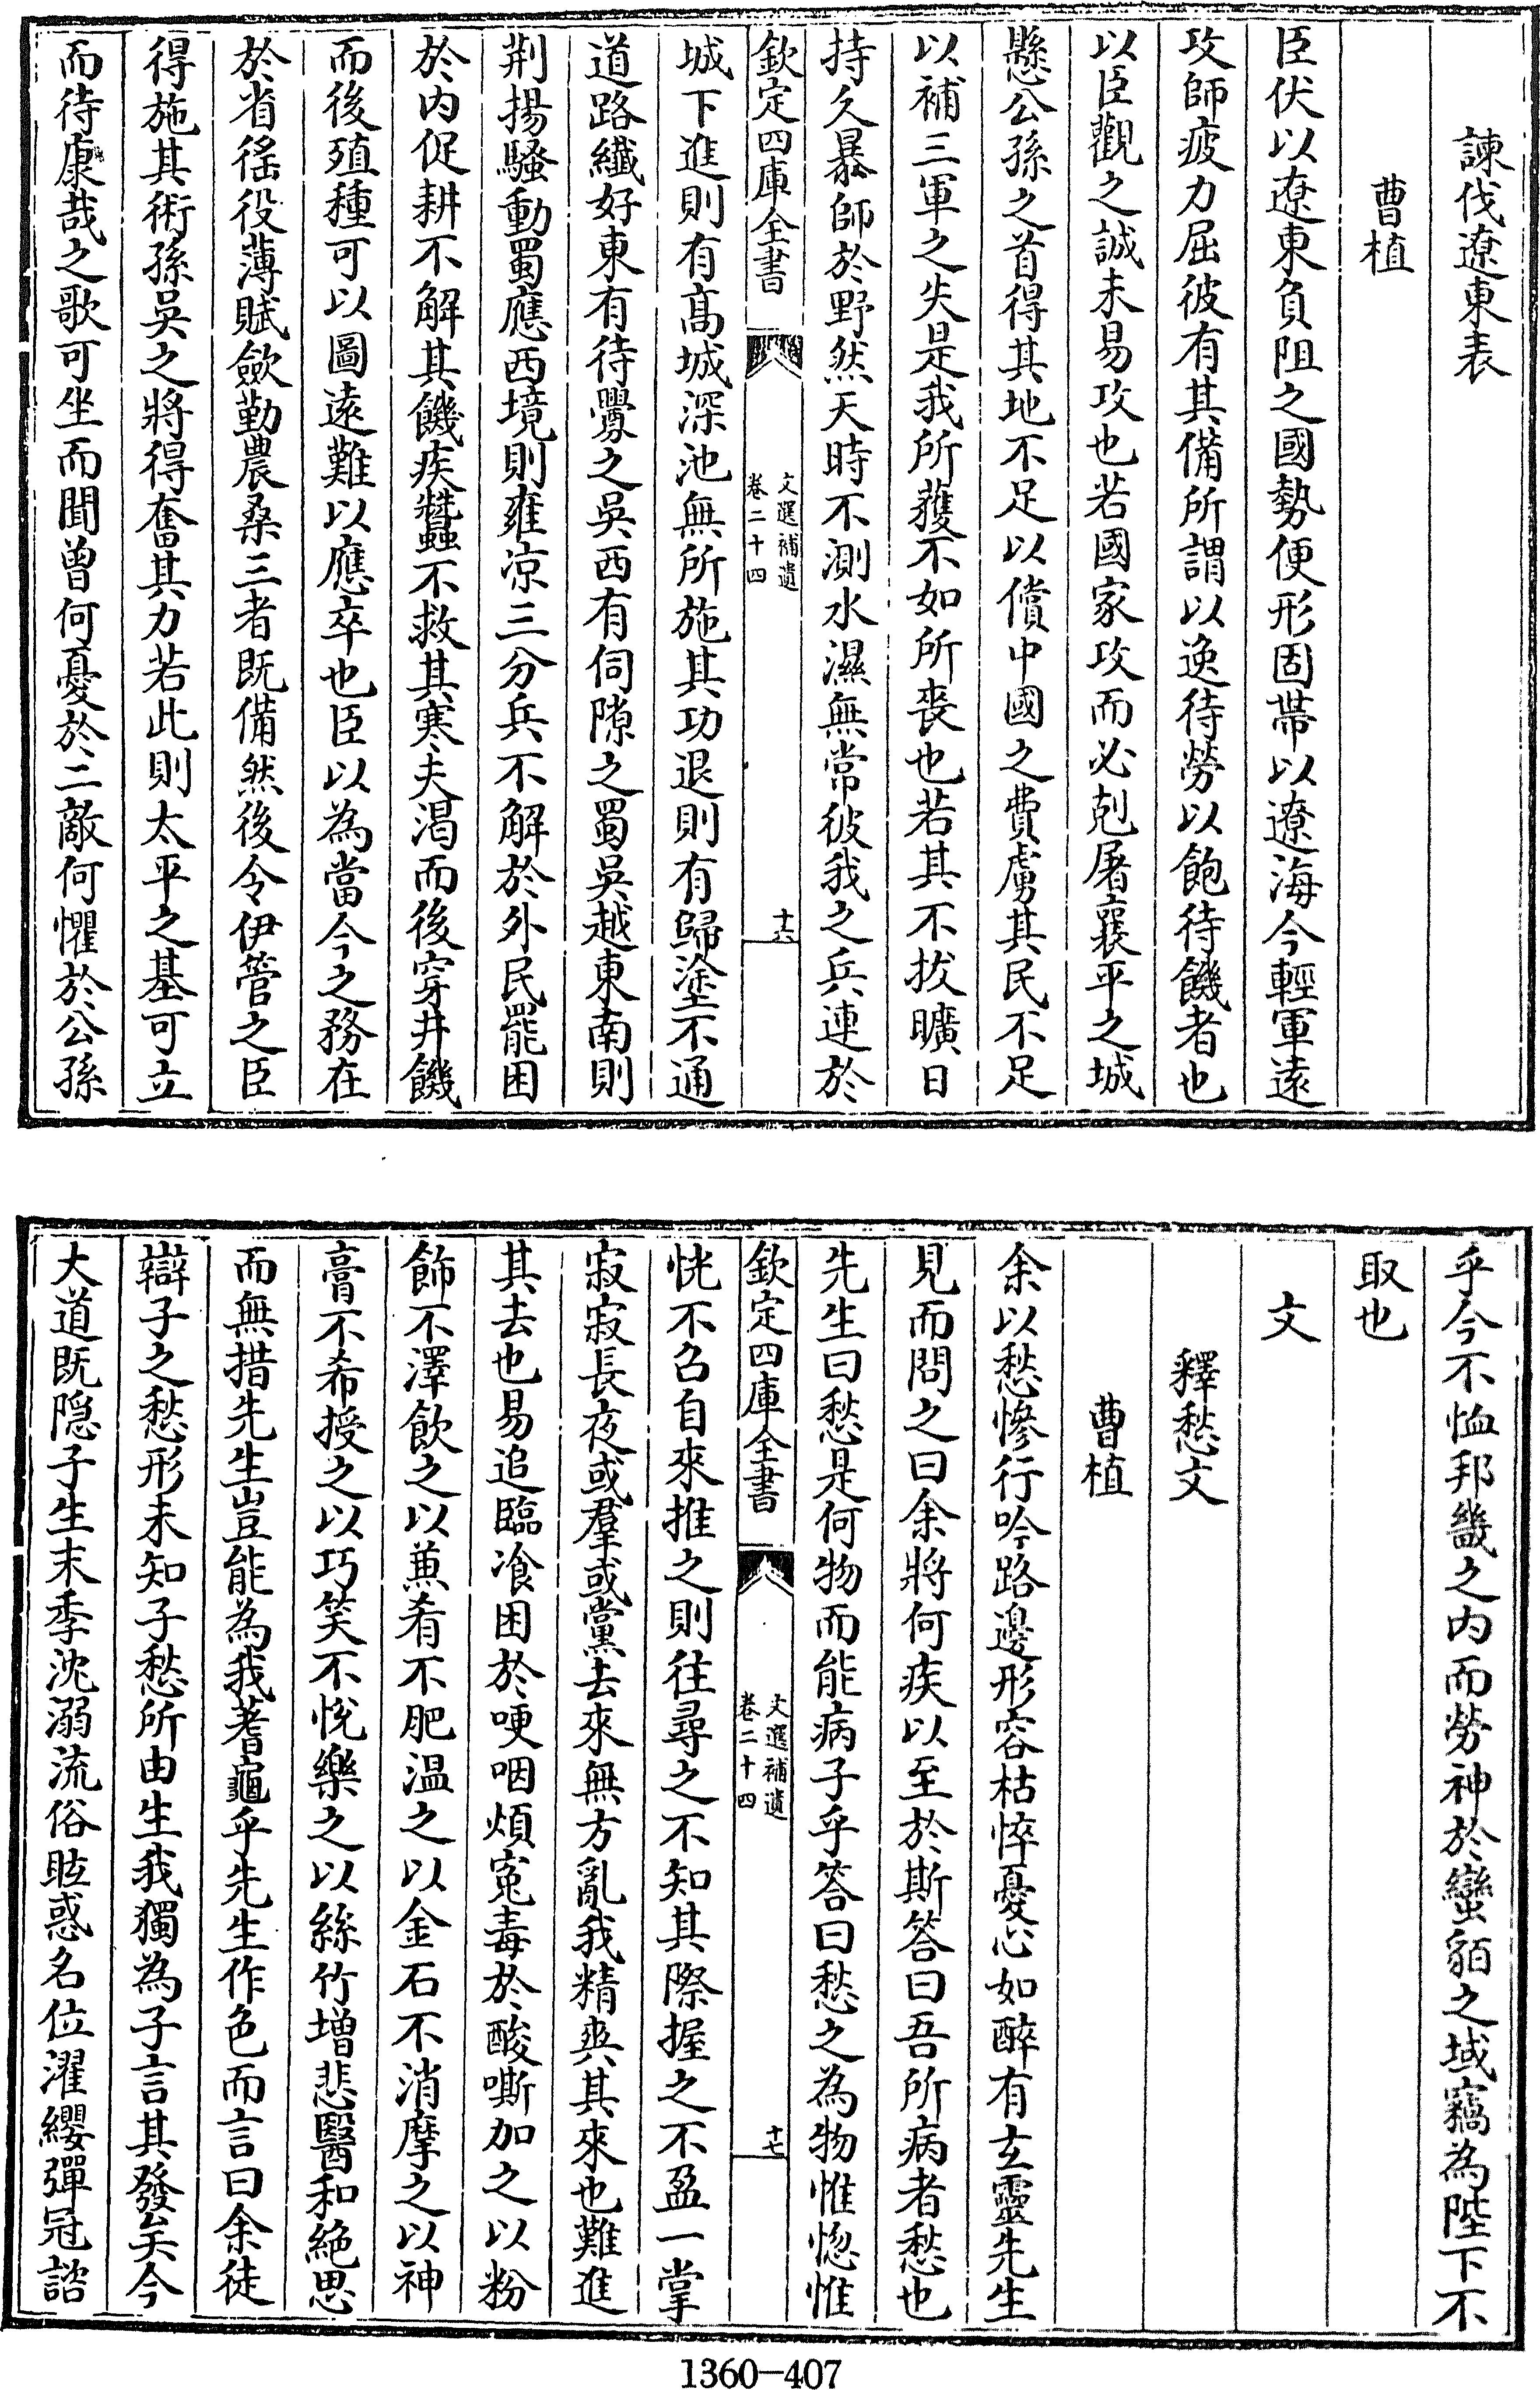 諫伐遼東表
曹植
臣伏以遼東負阻之國勢便形固帶以遼海今輕軍遠
攻師疲力屈彼有其備所謂以逸待勞以飽待饑者也
以臣觀之誠未易攻也若國家攻而必剋屠襄平之城
懸公孫之首得其地不足以償中國之費虜其民不足
以補三軍之失是我所獲不如所喪也若其不拔曠日
持久暴師於野然天時不測水濕無常彼我之兵連於
欽定四庫全書
文選補遺
卷二十四
十六
城下進則有髙城深池無所施其功退則有歸塗不通
道路纎好東有待釁之吳西有伺隙之蜀吳越東南則
荆揚騷動蜀應西境則雍凉三分兵不解於外民罷困
於内促耕不解其饑疾蠶不救其寒夫渴而後穿井饑
而後殖種可以圖遠難以應卒也臣以為當今之務在
於省徭役薄賦斂勤農桑三者既備然後令伊管之臣
得施其術孫吳之將得奮其力若此則太平之基可立
而待康哉之歌可坐而聞曽何憂於二敵何懼於公孫
乎今不恤邦畿之内而勞神於蠻貊之域竊為陛下不
取也
文
釋愁文
曹植
余以愁慘行吟路邊形容枯悴憂心如醉有玄靈先生
見而問之曰余將何疾以至於斯答曰吾所病者愁也
先生曰愁是何物而能病子乎答曰愁之為物惟惚惟
欽定四庫全書
文選補遺
卷二十四
十七
恍不召自來推之則往尋之不知其際握之不盈一掌
寂寂長夜或羣或黨去來無方亂我精爽其來也難進
其去也易追臨飡困於哽咽煩寃毒於酸嘶加之以粉
飾不澤飲之以兼肴不肥温之以金石不消摩之以神
膏不希授之以巧笑不悅樂之以絲竹增悲醫和絶思
而無措先生豈能為我蓍龜乎先生作色而言曰余徒
辯子之愁形未知子愁所由生我獨為子言其發矣今
大道既隠子生末季沈溺流俗眩惑名位濯纓彈冠諮
1360-407